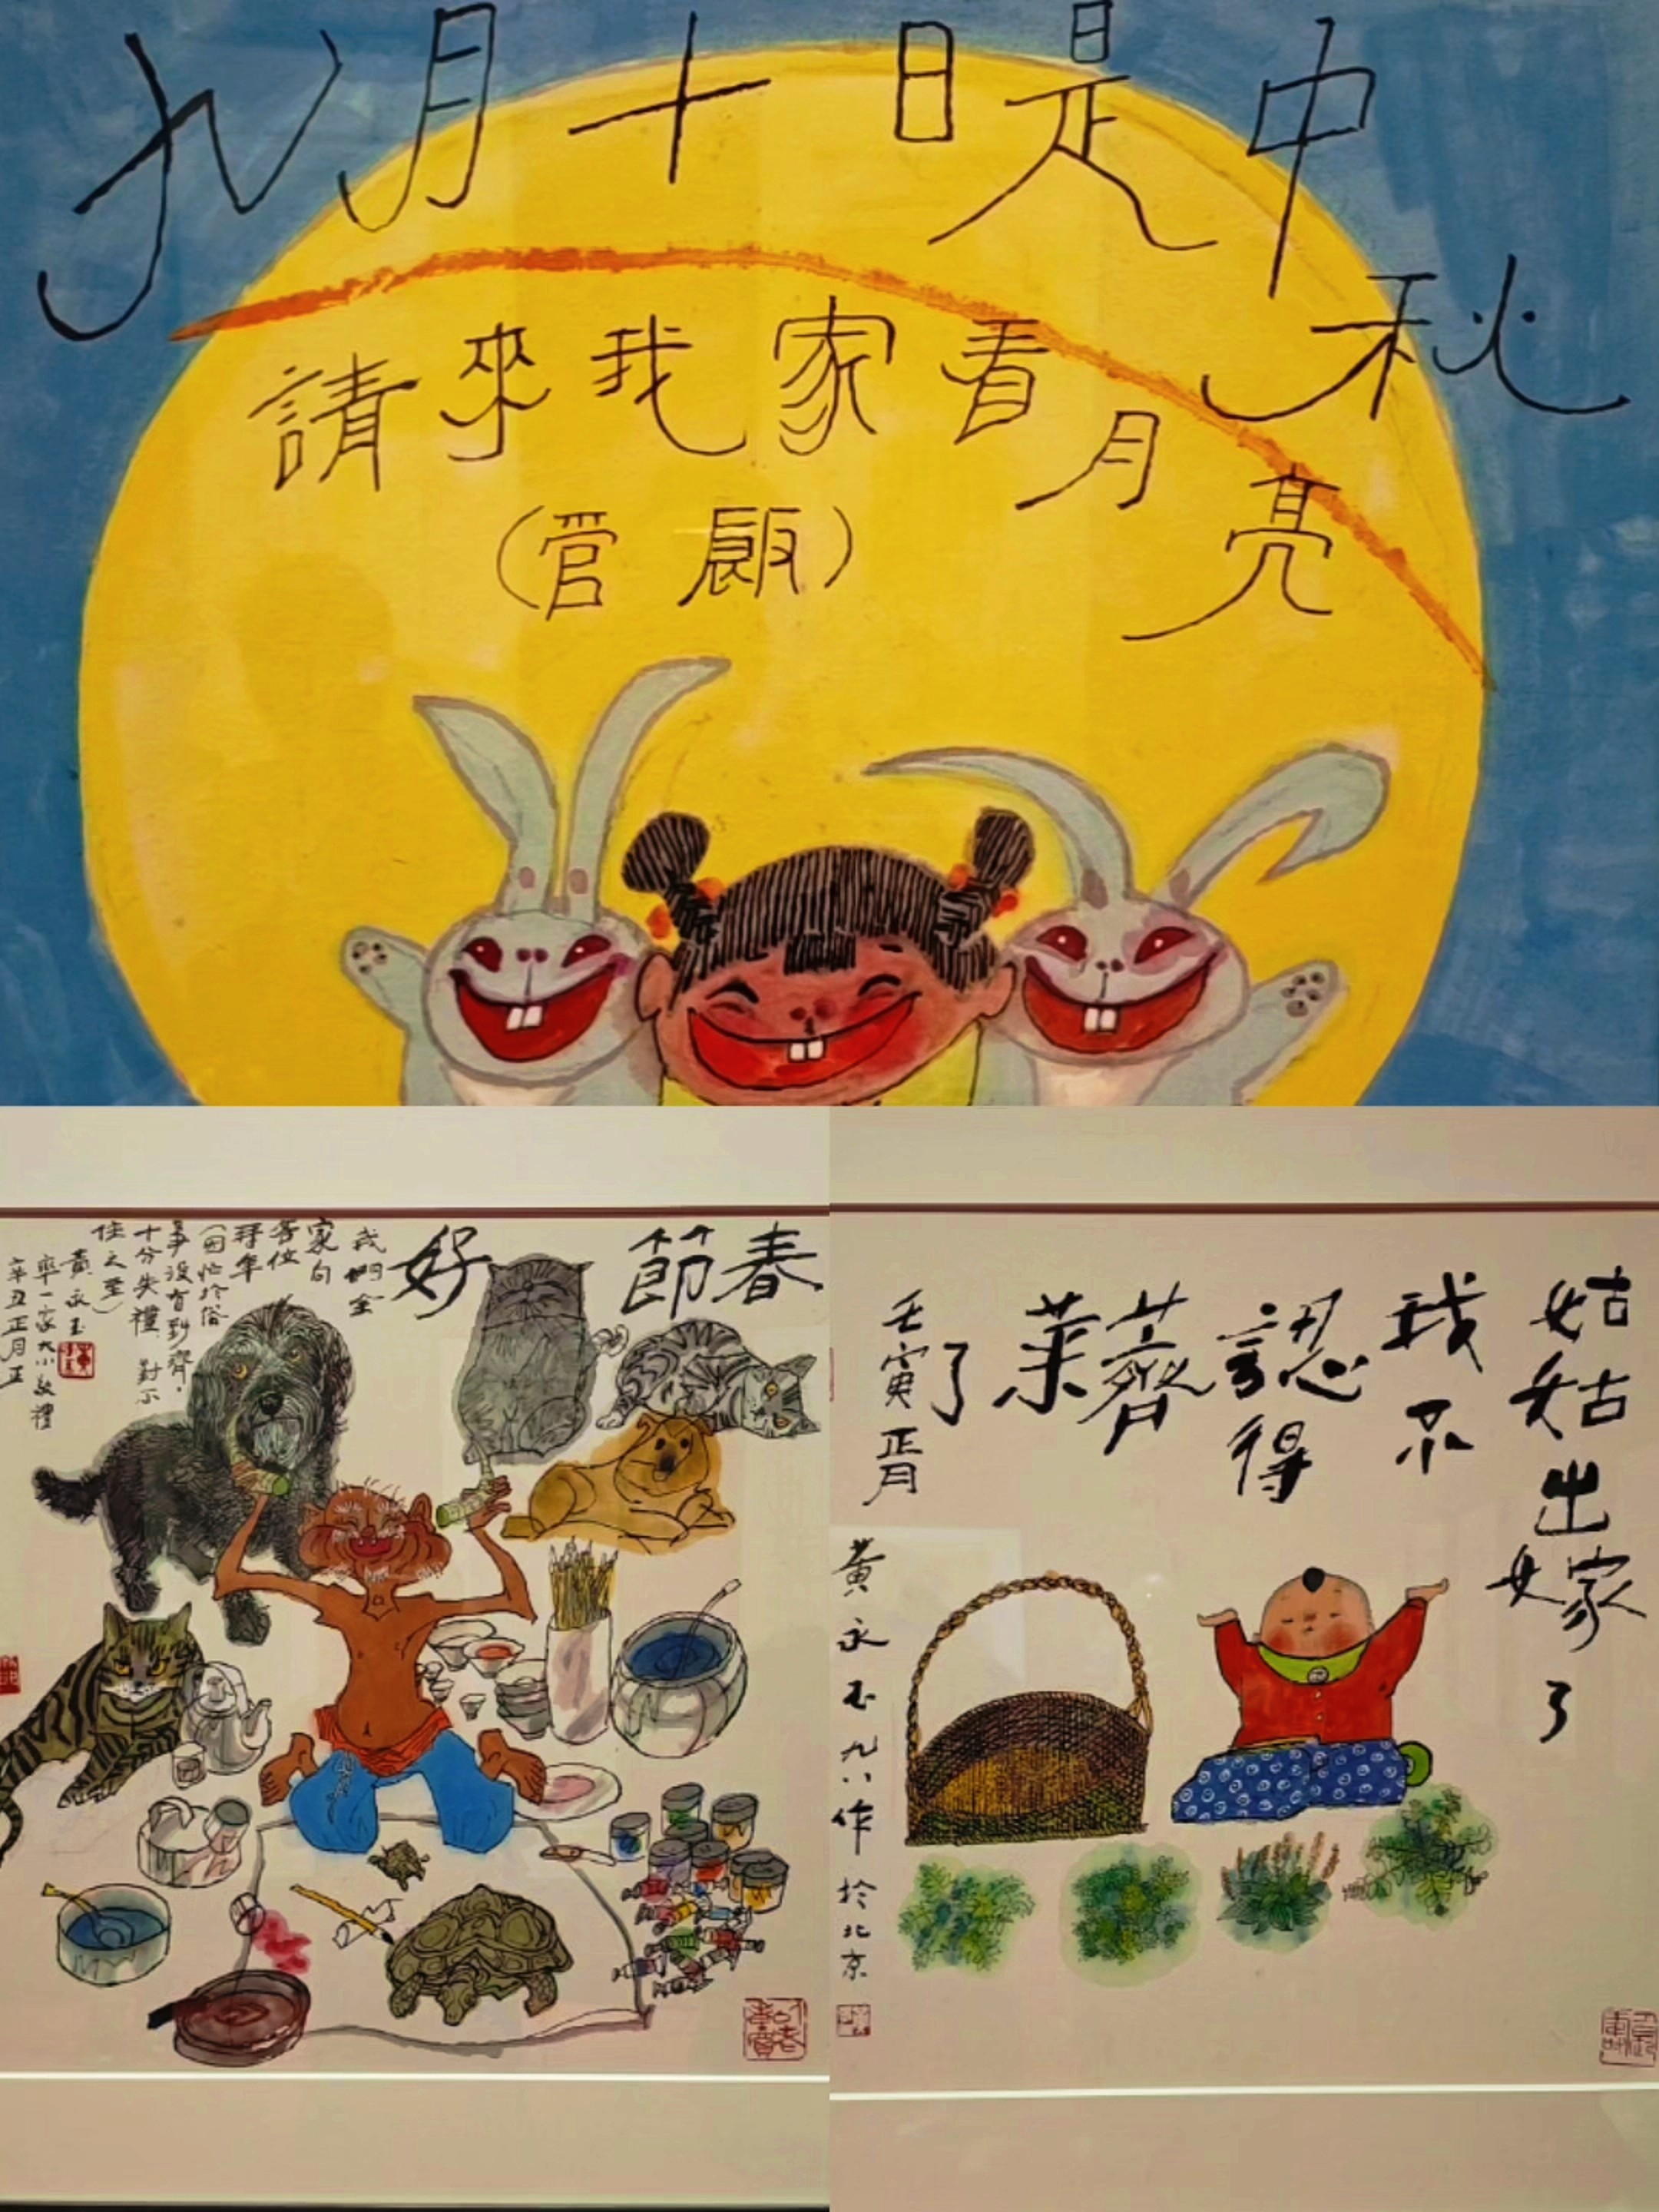 九月十日是中秋
請來我家看月亮
(管飯)
春節好
我們全
家向
各位
拜年
(因忙於俗
事没有到齊,
十分失禮,對不
住之至)
黃永玉
率一家大小敬禮
辛丑正月正
姑姑出嫁了
我不
認得
薺
菜
了
壬寅正月
黃永玉九八作於北京